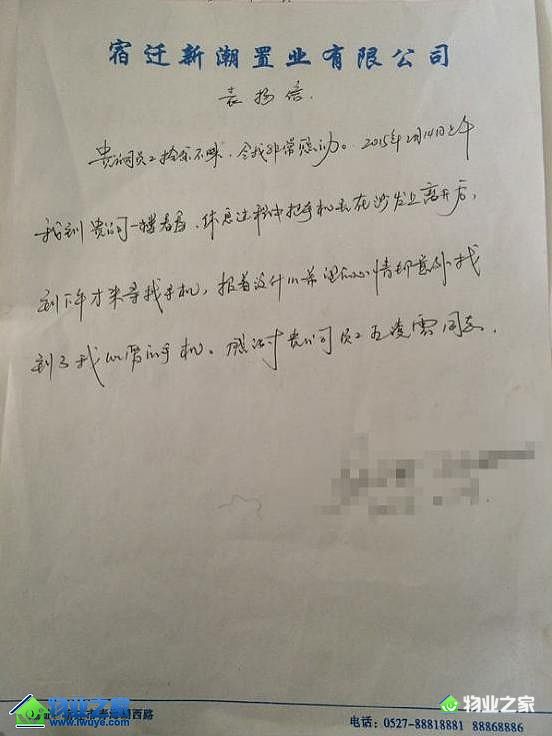 宿迁新潮置业有限公司
表扬信.
贵公司员工拾金不昧，令我非常感动。2015年2月14日上午
我到贵公司一楼看房，休息过程中把手机丢在沙发上离开后，
到下午才来寻找手机，报着没什么希望的心情却意外找
到了我的手机。感谢贵公司员工王凌云同志.
物业之家
www.iwuye.com
西路
电话：0527-88818881 88868886
物业之家